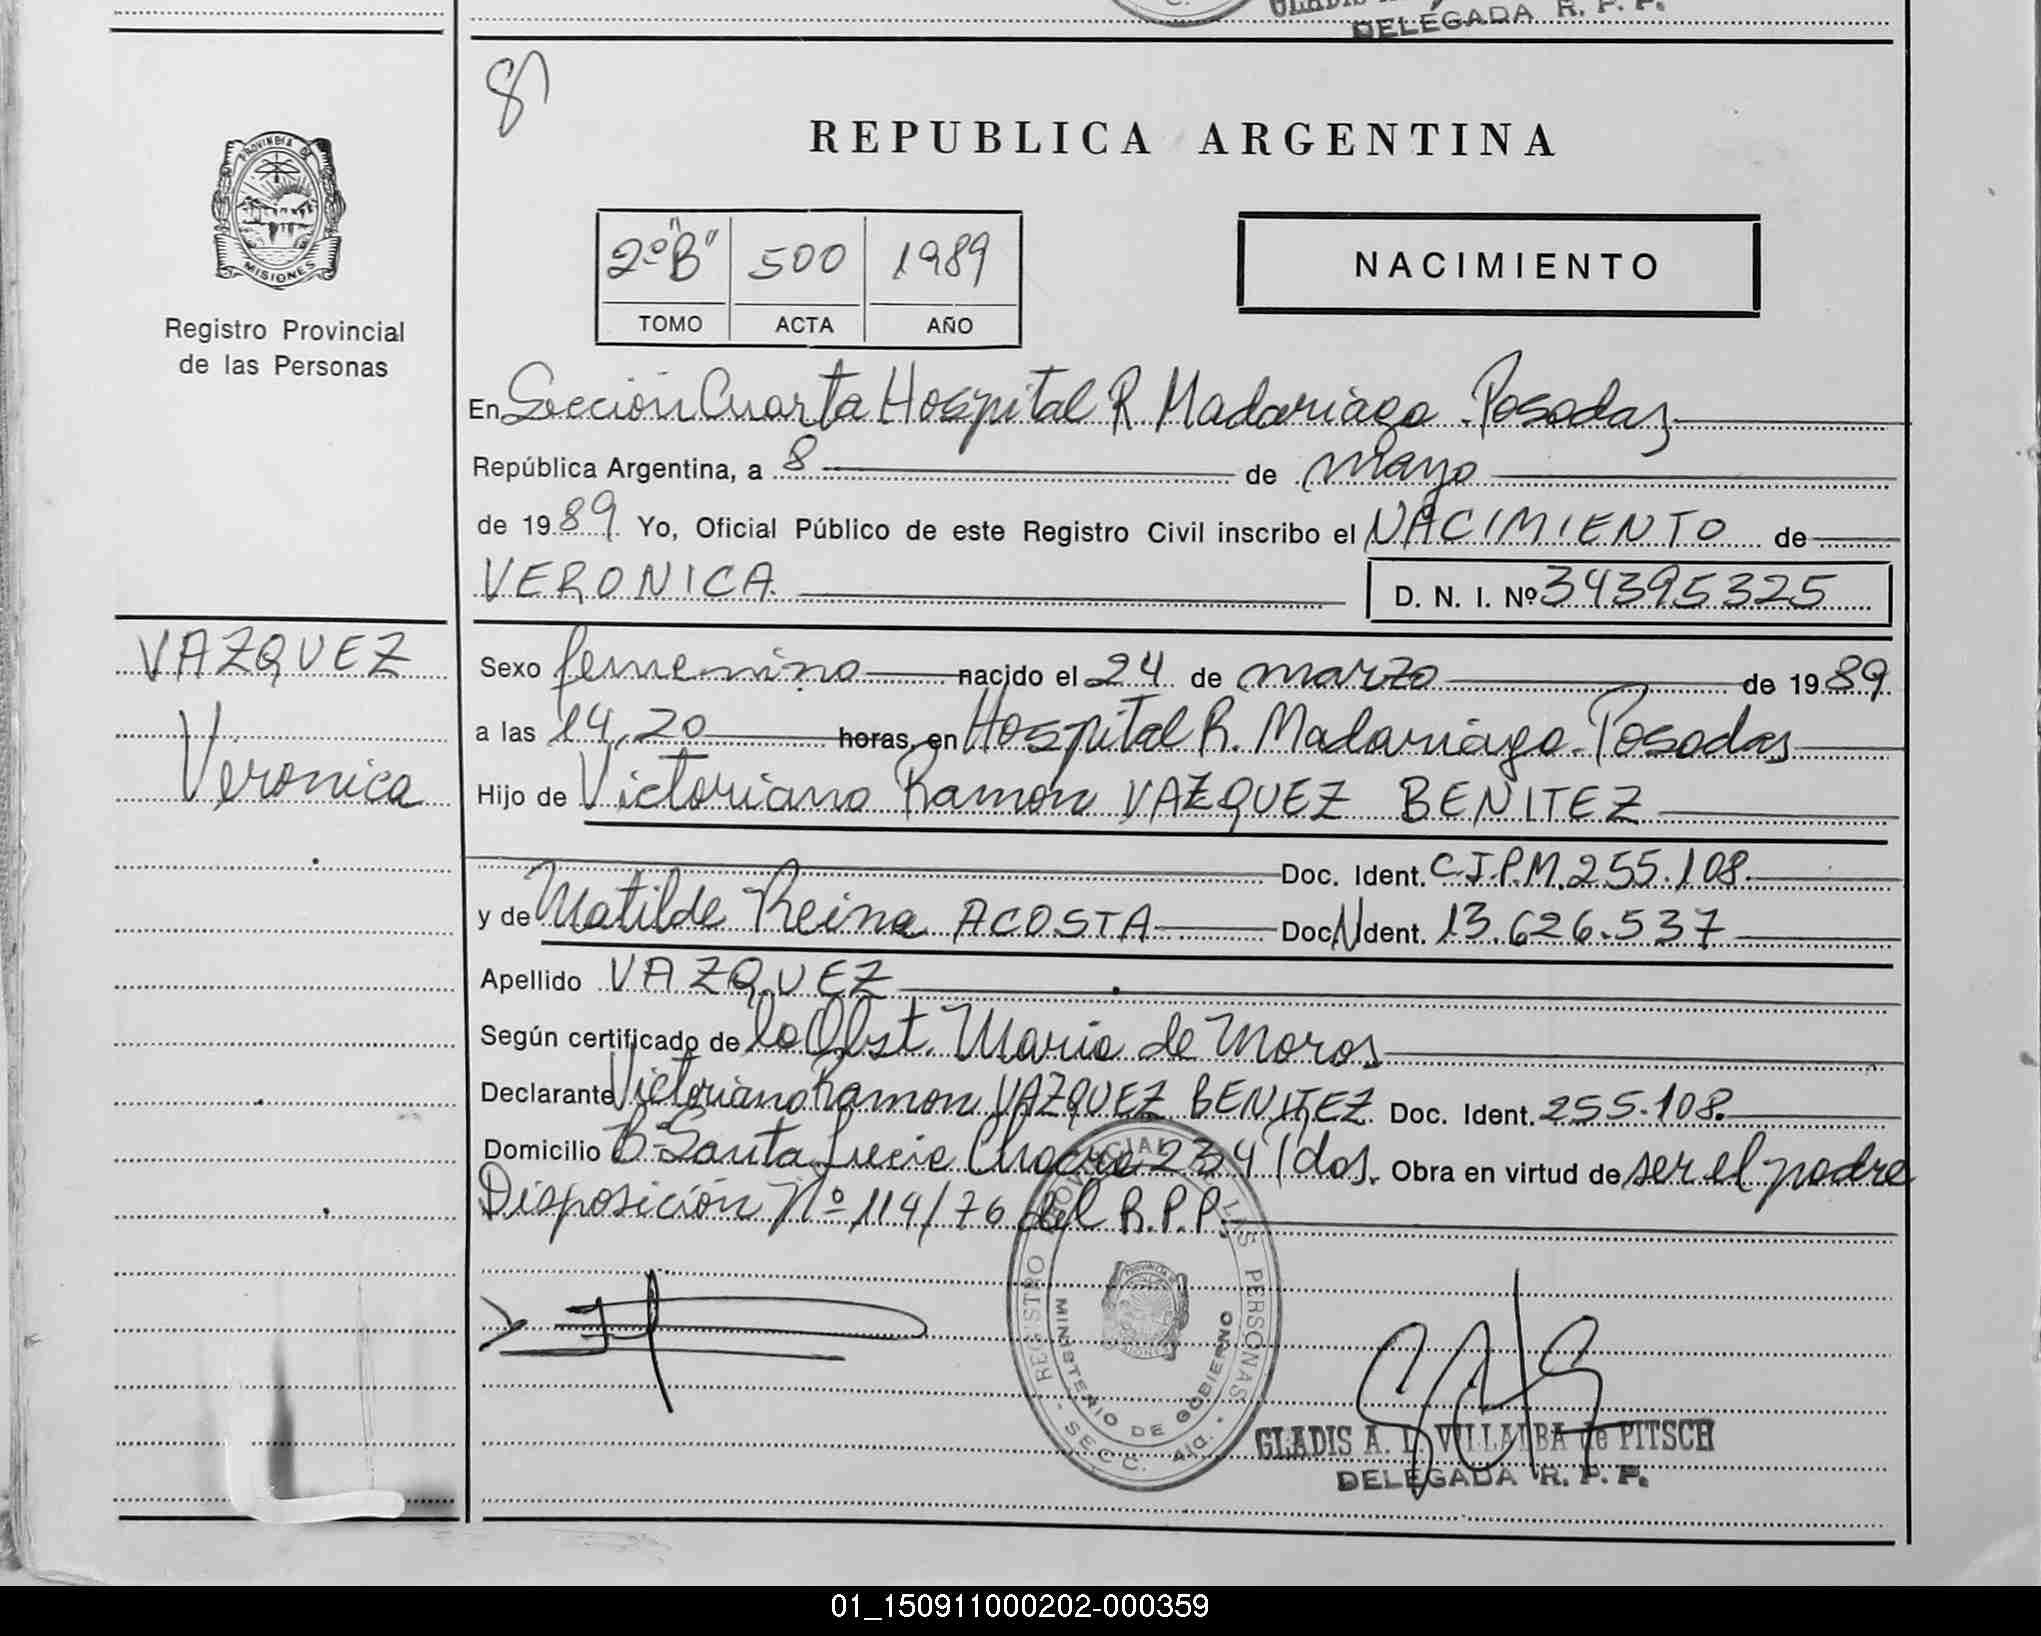 DELEGADA R. P. P.
8
REPUBLICA ARGENTINA
PROVINCIA DE
MISIONES
Registro Provincial
de las Personas
2º "B" 500 1989
TOMO ACTA AÑO
NACIMIENTO
En Sección Cuarta Hospital R Madariaga - Posadas
República Argentina, a 8 de mayo
de 1989 Yo, Oficial Público de este Registro Civil inscribo el NACIMIENTO de
VERONICA D. N. I. Nº 34395325
VAZQUEZ
Veronica
Sexo femenino nacido el 24 de marzo de 1989
a las 14,20 horas, en Hospital R. Madariaga - Posadas
Hijo de Victoriano Ramon VAZQUEZ BENITEZ
Doc. Ident. C.I.P.M. 255.108.
y de Matilde Reina ACOSTA Doc. Ident. 13.626.537
Apellido VAZQUEZ
Según certificado de la Obst. Maria de Moros
Declarante Victoriano Ramon VAZQUEZ BENITEZ Doc. Ident. 255.108.
Domicilio Bº Santa Lucia Chacra 234 Pdas. Obra en virtud de ser el padre
Disposición Nº 114/76 del R.P.P.
REGISTRO PROVINCIAL DE LAS PERSONAS
MINISTERIO DE GOBIERNO
SECC. 4ta.
GLADIS A. L. VILLALBA de PITSCH
DELEGADA R. P. P.
01_150911000202-000359